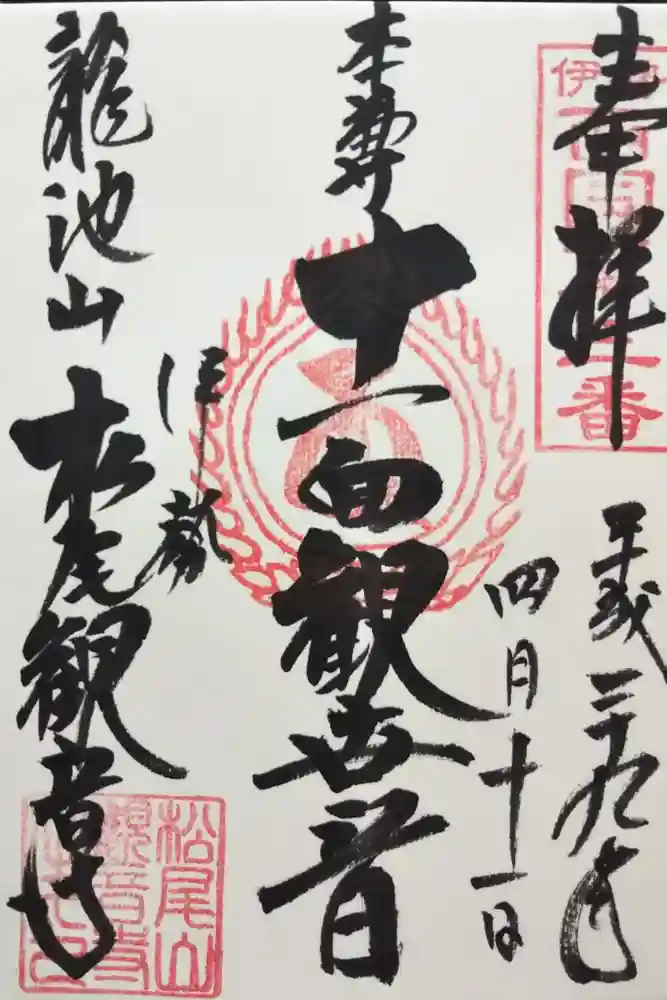 奉拝
平成二十九年
四月十一日
本尊
十一面観世音
伊勢
龍池山
松尾観音寺
松尾山
観音寺